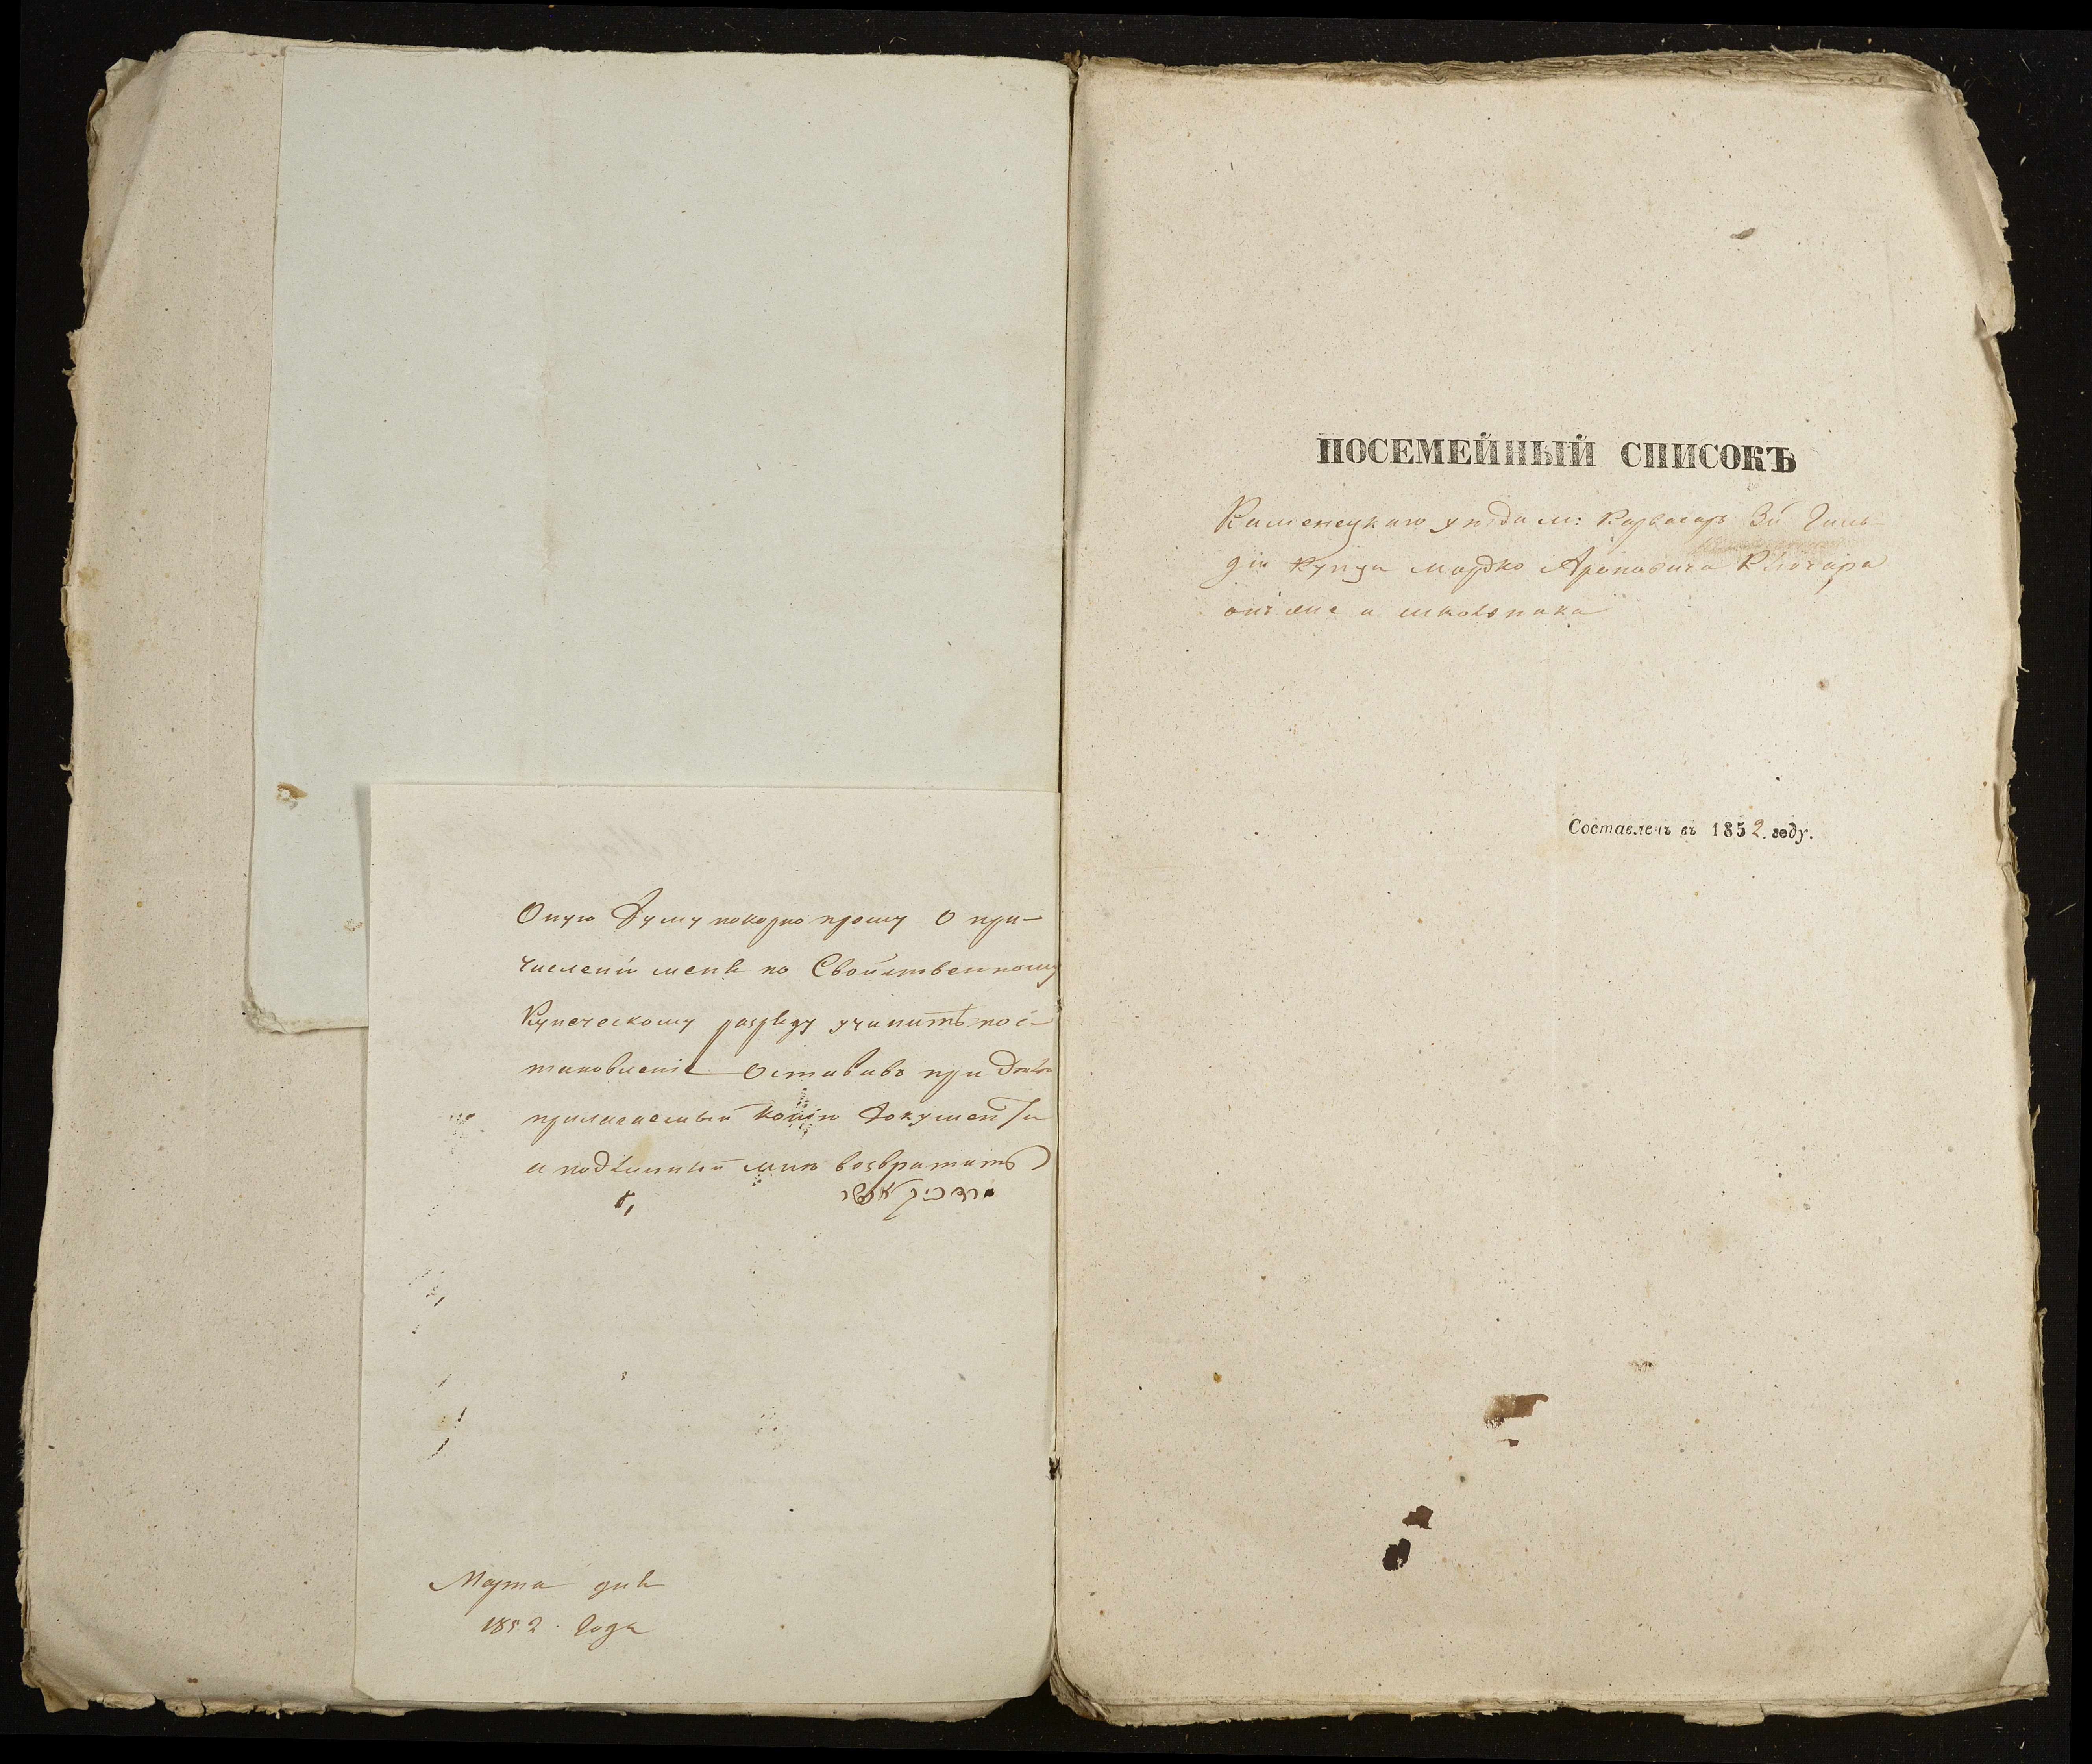 Оную Думу покорно прошу О при-
численіи меня по Свойственному
Купеческому разряду учинить пос-
тановленіе Оставивъ при
прилагаемый копіи Документа
и подлинный мнѣ возвратить
Марта дня
1852. Года
ПОСЕМЕЙНЫЙ СПИСОКЪ
Каменецкаго уезда м: Карвасаръ 3й Гиль-
діи Купца Мордко Ароновича
онъ же и школьника
Составленъ въ 1852. году.